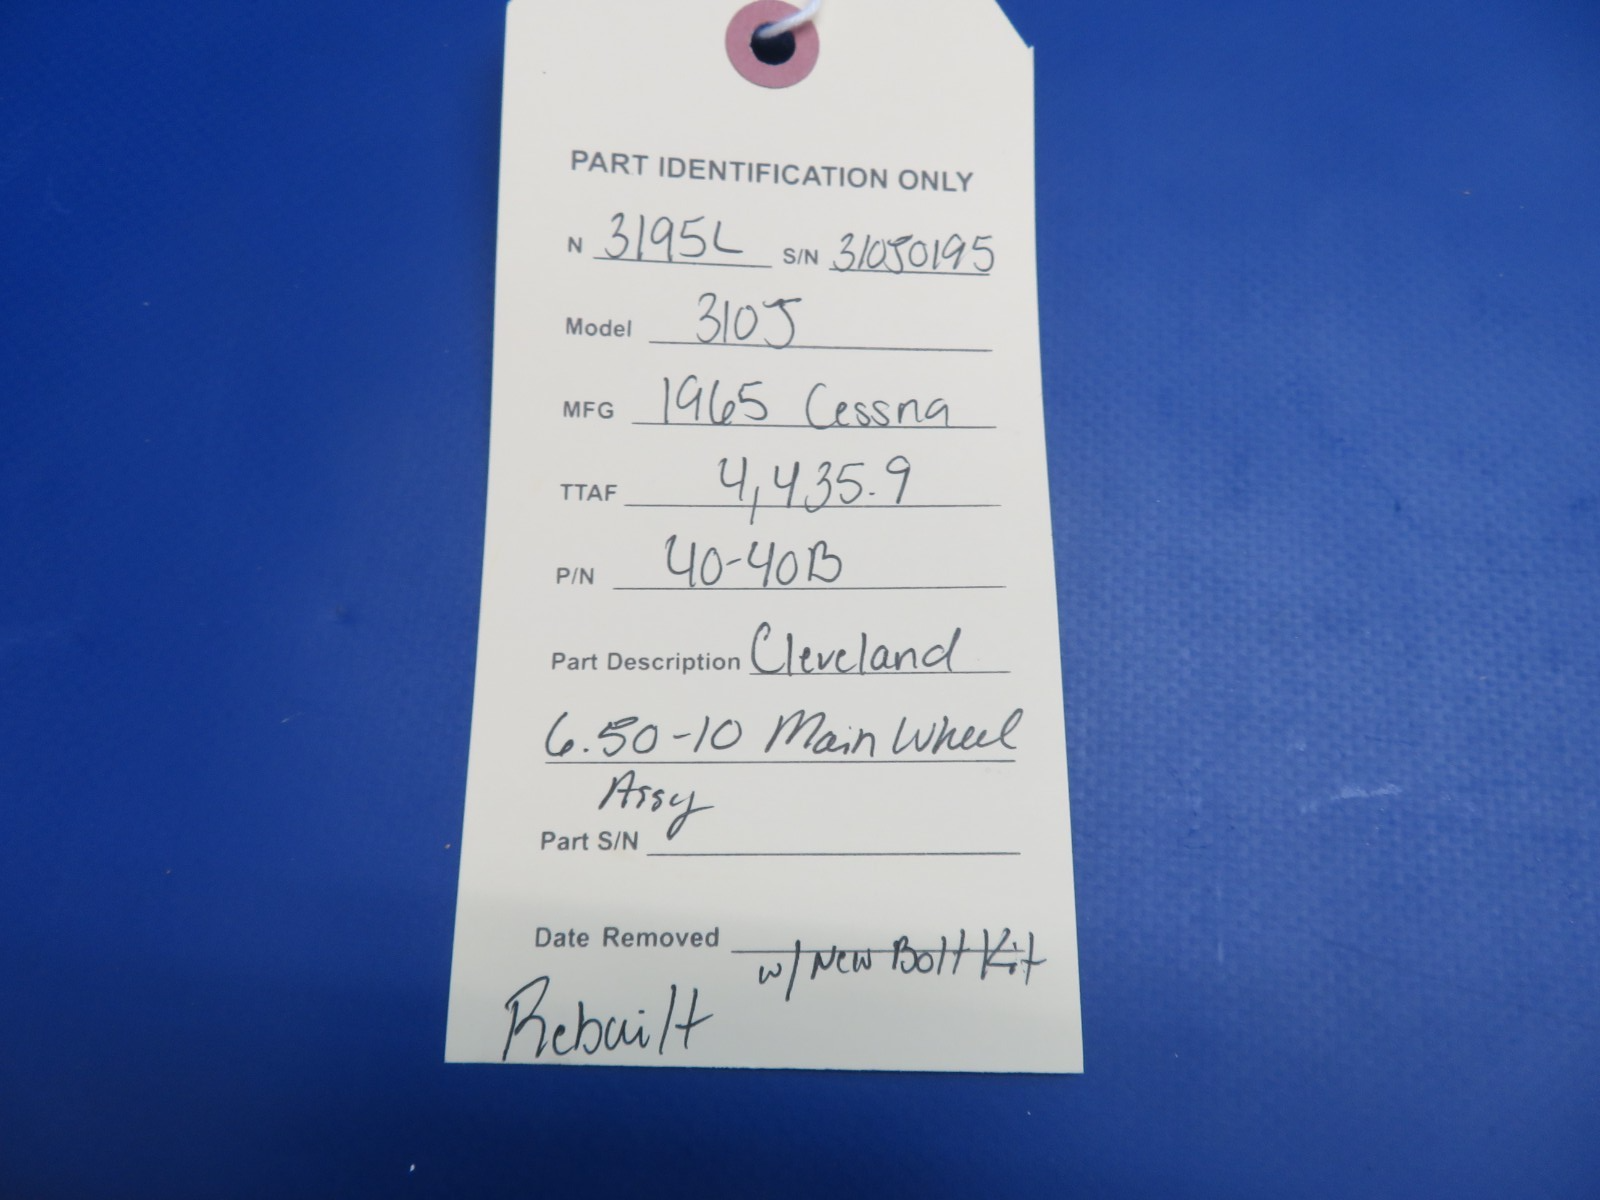 PART IDENTIFICATION ONLY
N 3195L S/N 310J0195
Model 310J
MFG 1965 Cessna
TTAF 4,435.9
P/N 40-40B
Part Description Cleveland
6.50-10 Main Wheel
Assy
Part S/N
Date Removed
w/ New Bolt Kit
Rebuilt